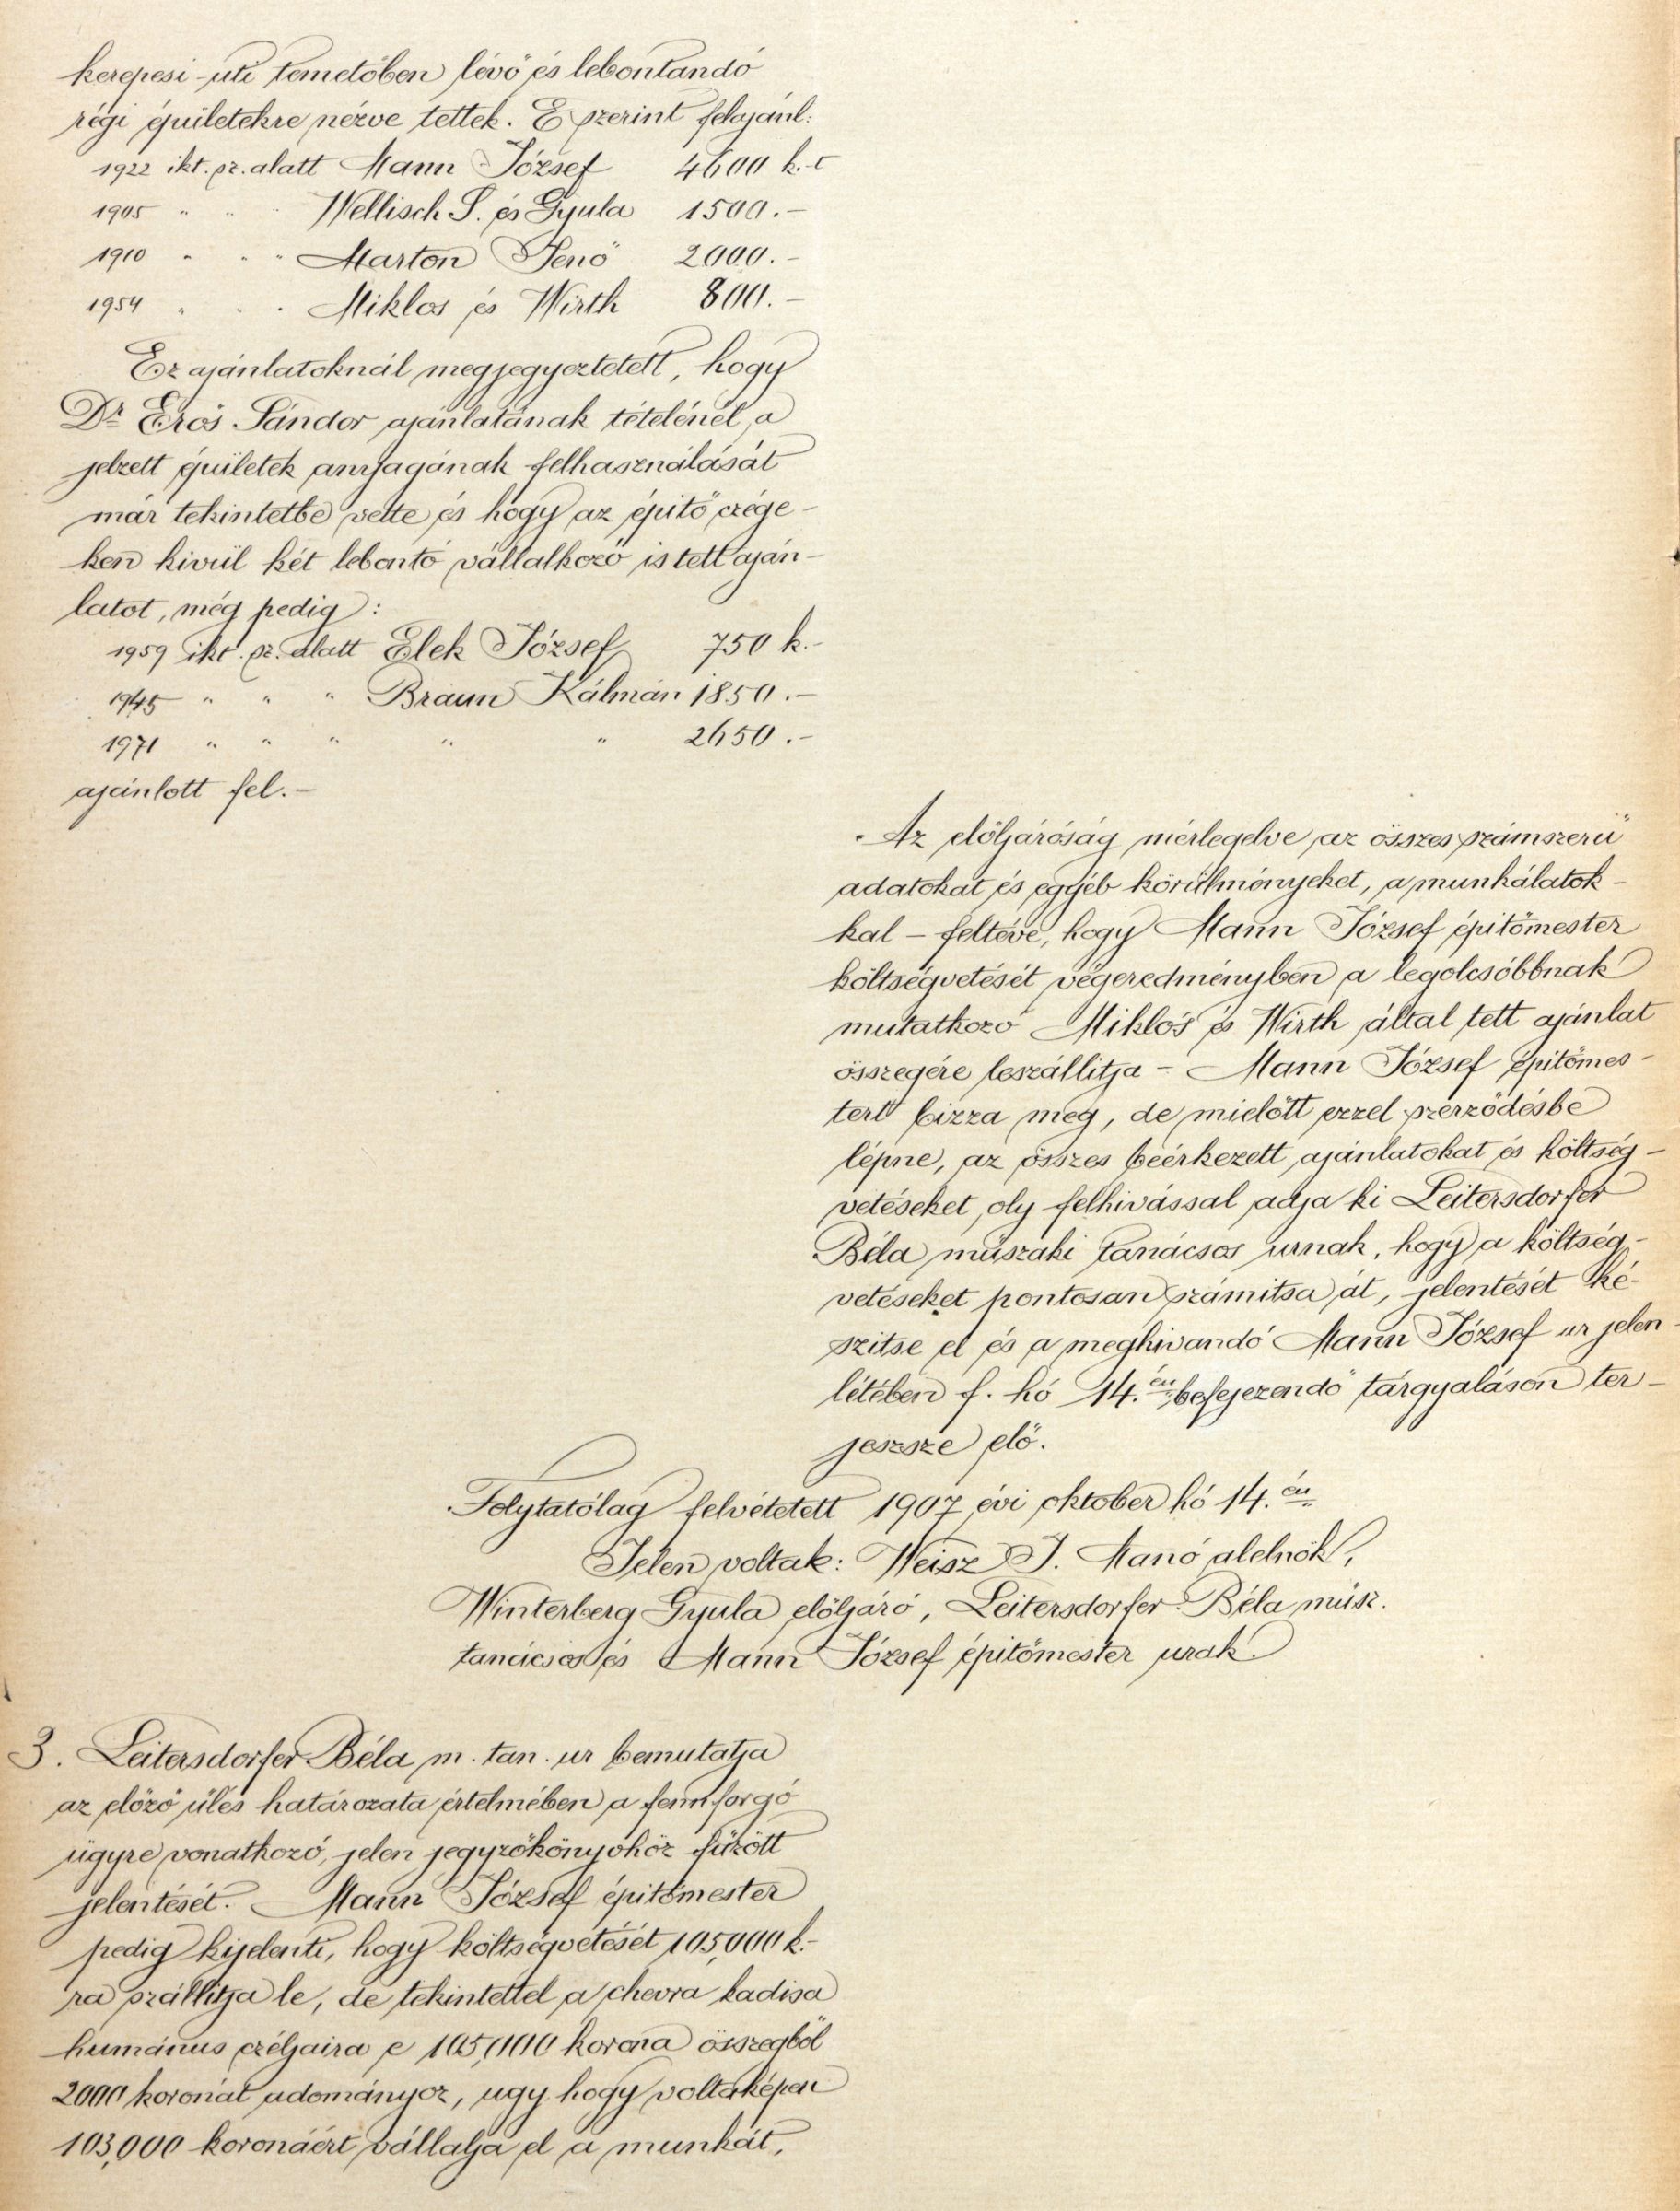 kerepesi-úti temetőben lévő és lebontandó
régi épületekre nézve tettek. E szerint felajánl:
1922 ikt. sz. alatt Mann József 4600 k.-t
1905 " " " Wellisch S. és Gyula 1500.–
1910 " " " Marton Jenő 2000.–
1954 " " " Miklos és Wirth 800.–
Ez ajánlatoknál megjegyeztetett, hogy
Dr Erős Sándor ajánlatának tételénél a
jelzett épületek anyagának felhasználását
már tekintetbe vette és hogy az építő czége-
ken kivül két lebontó vállalkozó is tett aján-
latot, még pedig:
1959 ikt. sz. alatt Elek József 750 k.-
1945 " " " Braun Kálmán 1850.–
1971 " " " " " 2650.–
ajánlott fel.–
Az előljáróság mérlegelve az összes számszerű
adatokat és egyéb körülményeket, a munkálatok-
kal – feltéve, hogy Mann József épitőmester
költségvetését végeredményben a legolcsóbbnak
mutatkozó Miklós és Wirth által tett ajánlat
összegére leszállitja – Mann József épitőmes-
tert bizza meg, de mielőtt ezzel szerződésbe
lépne, az összes beérkezett ajánlatokat és költség-
vetéseket oly felhivással adja ki Leitersdorfer
Béla műszaki tanácsos urnak, hogy a költség-
vetéseket pontosan számitsa át, jelentését ké-
szitse el és a meghivandó Mann József ur jelen-
létében f. hó 14.én befejezendő tárgyaláson ter-
jeszsze elő.
Folytatólag felvétetett 1907 évi oktober hó 14.én
Jelen voltak: Weisz J. Manó alelnök,
Winterberg Gyula előljáró, Leitersdorfer Béla müsz.
tanácsos és Mann József épitőmester urak.
3. Leitersdorfer Béla m. tan. ur bemutatja
az előző ülés határozata értelmében a fennforgó
ügyre vonatkozó, jelen jegyzőkönyvhöz fűzött
jelentését. Mann József épitőmester
pedig kijelenti, hogy költségvetését 105,000 k.-
ra szállitja le, de tekintettel a chevra kadisa
humánus czéljaira e 105,000 korona összegből
2000 koronát adományoz, ugy hogy voltaképen
103,000 koronáért vállalja el a munkát,